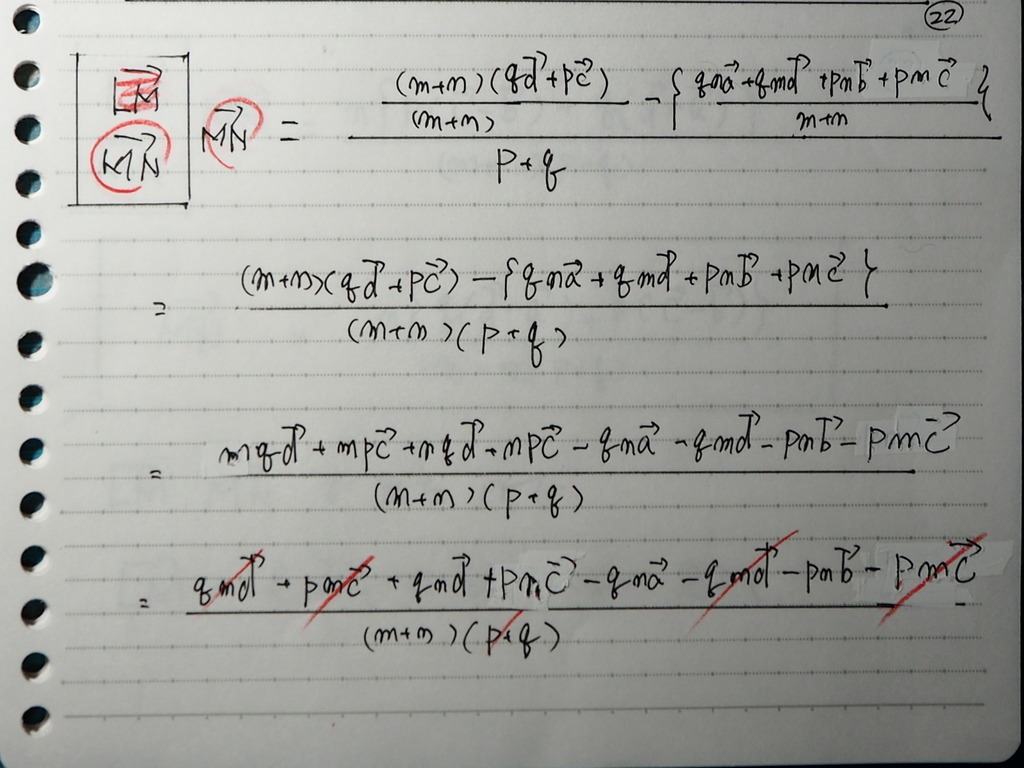 22
LM
MN
MN = ((m+n)(qd+pc)/(m+n) - {(qna+qmd+pnb+pmc)/(m+n)})/(p+q)
= ((m+n)(qd+pc) - {qna+qmd+pnb+pmc})/((m+n)(p+q))
= (mqd+mpc+nqd+npc-qna-qmd-pnb-pmc)/((m+n)(p+q))
= (qmd+pmc+qnd+pnc-qna-qmd-pnb-pmc)/((m+n)(p+q))